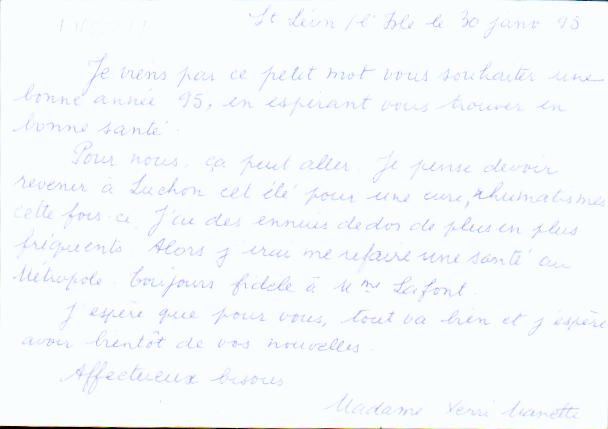 St Léon / l'Isle le 30 janv 95
Je viens par ce petit mot vous souhaiter une
bonne année 95, en espérant vous trouver en
bonne santé.
Pour nous, ça peut aller. Je pense devoir
revenir à Luchon cet été pour une cure, rhumatismes
cette fois-ci. J'ai des ennuis de dos de plus en plus
fréquents. Alors j'irai me refaire une santé au
Métropole. Toujours fidèle à Mme Lafont.
J'espère que pour vous, tout va bien et j'espère
avoir bientôt de vos nouvelles.
Affectueux bisous
Madame